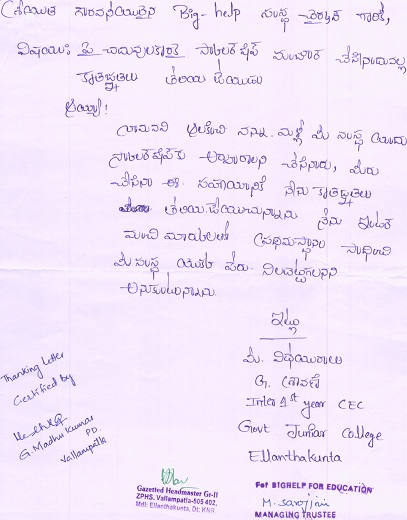 శ్రీయుత గౌరవనీయులైన Big-help సంస్థ చైర్మన్ గారికి,
విషయం: పై చదువులకొరకై స్కాలర్ షిప్ మంజూరు చేసినందువల్ల
కృతజ్ఞతలు తెలియజేయుట
అయ్యా!
నన్ను మళ్లీ మీ సంస్థ యందు
స్కాలర్ షిప్ కు చేసినారు, మీరు
చేసిన ఈ సహాయానికి నేను కృతజ్ఞతలు
తెలియజేయుచున్నాను నేను ఇంటర్
మంచి మార్కులతో ప్రథమస్థానం సాధించి
మీ సంస్థ యొక్క పేరు నిలబెట్టగలనని
అనుకుంటున్నాను
ఇట్లు
మీ విధేయురాలు
G. శ్రావణి
Inter 1st year CEC
Govt Junior College
Ellanthakunta
Thanking letter
Certified by
G. Madhu Kumar
PD.
Vallampatla
Gazetted Headmaster Gr-II
ZPHS, Vallampatla-505 402,
Mdl: Ellanthakunta, Dt: KNR
For BIGHELP FOR EDUCATION
M. Sarojini
MANAGING TRUSTEE